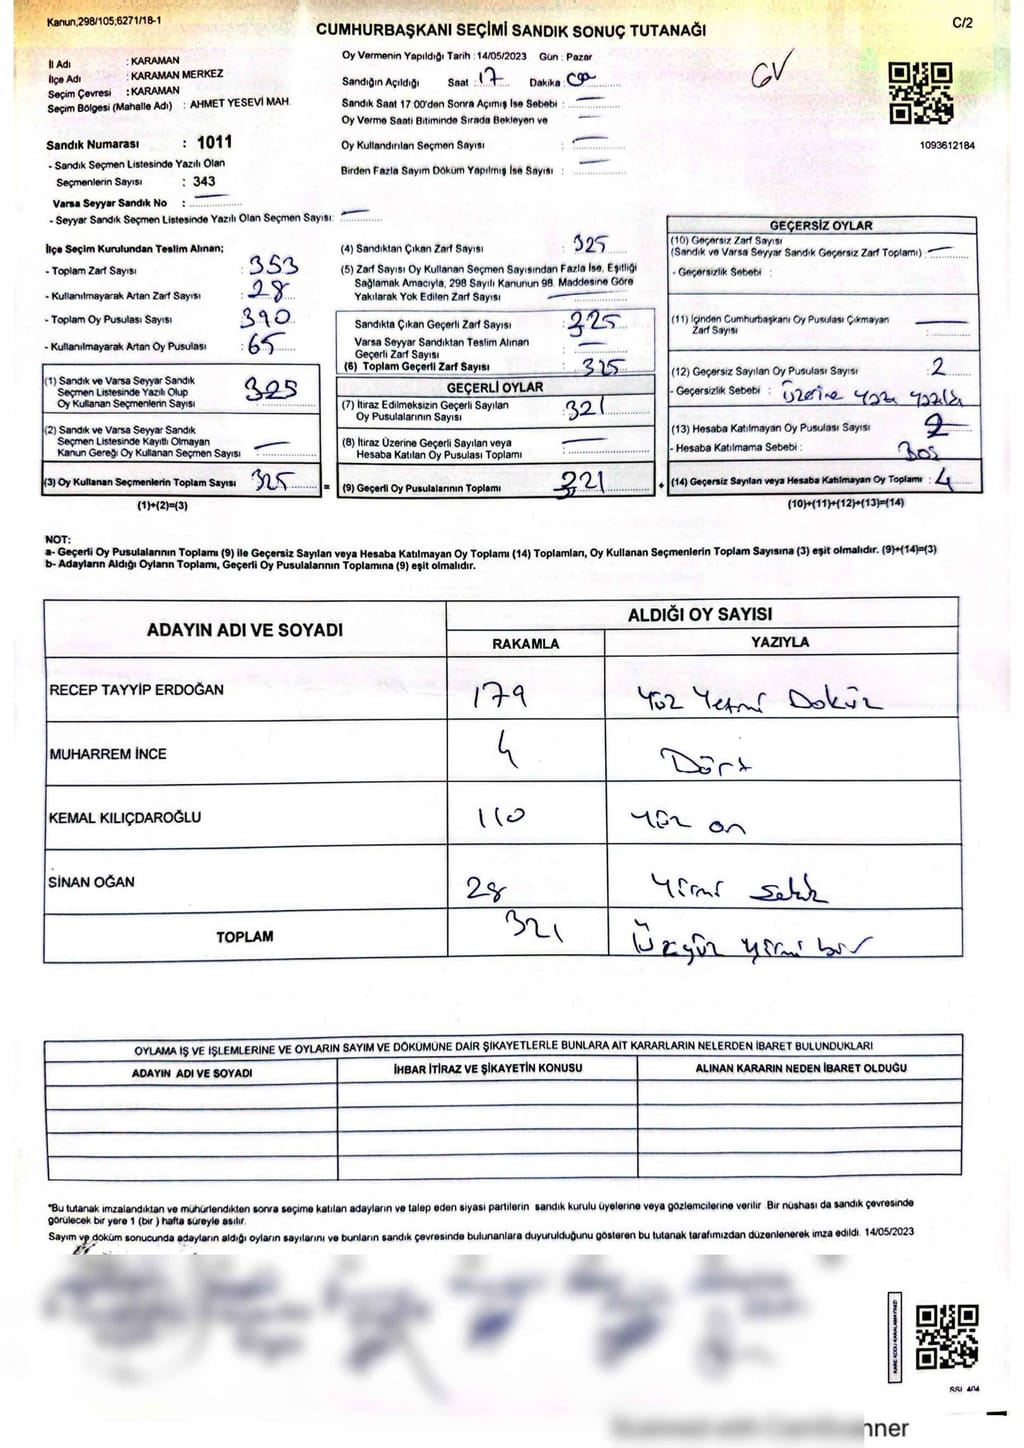 Kanun,298/105;6271/18-1
C/2
CUMHURBAŞKANI SEÇİMİ SANDIK SONUÇ TUTANAĞI
İl Adı : KARAMAN
İlçe Adı : KARAMAN MERKEZ
Seçim Çevresi : KARAMAN
Seçim Bölgesi (Mahalle Adı) : AHMET YESEVİ MAH.
Sandık Numarası : 1011
- Sandık Seçmen Listesinde Yazılı Olan
Seçmenlerin Sayısı : 343
Varsa Seyyar Sandık No :
- Seyyar Sandık Seçmen Listesinde Yazılı Olan Seçmen Sayısı:
Oy Vermenin Yapıldığı Tarih : 14/05/2023 Gün : Pazar
Sandığın Açıldığı Saat : 17 Dakika :
Sandık Saat 17:00'den Sonra Açımış İse Sebebi :
Oy Verme Saati Bitiminde Sırada Bekleyen ve
Oy Kullandırılan Seçmen Sayısı :
Birden Fazla Sayım Döküm Yapılmış İse Sayısı :
GV
1093612184
İlçe Seçim Kurulundan Teslim Alınan;
- Toplam Zarf Sayısı : 353
- Kullanılmayarak Artan Zarf Sayısı : 28
- Toplam Oy Pusulası Sayısı : 390
- Kullanılmayarak Artan Oy Pusulası : 65
(1) Sandık ve Varsa Seyyar Sandık
Seçmen Listesinde Yazılı Olup
Oy Kullanan Seçmenlerin Sayısı : 325
(2) Sandık ve Varsa Seyyar Sandık
Seçmen Listesinde Kayıtlı Olmayan
Kanun Gereği Oy Kullanan Seçmen Sayısı :
(3) Oy Kullanan Seçmenlerin Toplam Sayısı : 325
(1)+(2)=(3)
=
(4) Sandıktan Çıkan Zarf Sayısı : 325
(5) Zarf Sayısı Oy Kullanan Seçmen Sayısından Fazla İse, Eşitliği
Sağlamak Amacıyla, 298 Sayılı Kanunun 98. Maddesine Göre
Yakılarak Yok Edilen Zarf Sayısı :
Sandıkta Çıkan Geçerli Zarf Sayısı : 325
Varsa Seyyar Sandıktan Teslim Alınan
Geçerli Zarf Sayısı :
(6) Toplam Geçerli Zarf Sayısı : 325
GEÇERLİ OYLAR
(7) İtiraz Edilmeksizin Geçerli Sayılan
Oy Pusulalarının Sayısı : 321
(8) İtiraz Üzerine Geçerli Sayılan veya
Hesaba Katılan Oy Pusulası Toplamı :
(9) Geçerli Oy Pusulalarının Toplamı : 321
+
GEÇERSİZ OYLAR
(10) Geçersiz Zarf Sayısı
(Sandık ve Varsa Seyyar Sandık Geçersiz Zarf Toplamı) :
- Geçersizlik Sebebi :
(11) İçinden Cumhurbaşkanı Oy Pusulası Çıkmayan
Zarf Sayısı :
(12) Geçersiz Sayılan Oy Pusulası Sayısı : 2
- Geçersizlik Sebebi : Üzerine yazı yazıldı
(13) Hesaba Katılmayan Oy Pusulası Sayısı : 2
- Hesaba Katılmama Sebebi : Boş
(14) Geçersiz Sayılan veya Hesaba Katılmayan Oy Toplamı : 4
(10)+(11)+(12)+(13)=(14)
NOT:
a- Geçerli Oy Pusulalarının Toplamı (9) ile Geçersiz Sayılan veya Hesaba Katılmayan Oy Toplamı (14) Toplamları, Oy Kullanan Seçmenlerin Toplam Sayısına (3) eşit olmalıdır. (9)+(14)=(3)
b- Adayların Aldığı Oyların Toplamı, Geçerli Oy Pusulalarının Toplamına (9) eşit olmalıdır.
ADAYIN ADI VE SOYADI
ALDIĞI OY SAYISI
RAKAMLA YAZIYLA
RECEP TAYYİP ERDOĞAN 179 Yüz Yetmiş Dokuz
MUHARREM İNCE 4 Dört
KEMAL KILIÇDAROĞLU 110 Yüz on
SİNAN OĞAN 28 Yirmi sekiz
TOPLAM 321 Üçyüz yirmi bir
OYLAMA İŞ VE İŞLEMLERİNE VE OYLARIN SAYIM VE DÖKÜMÜNE DAİR ŞİKAYETLERLE BUNLARA AİT KARARLARIN NELERDEN İBARET BULUNDUKLARI
ADAYIN ADI VE SOYADI İHBAR İTİRAZ VE ŞİKAYETİN KONUSU ALINAN KARARIN NEDEN İBARET OLDUĞU
*Bu tutanak imzalandıktan ve mühürlendikten sonra seçime katılan adayların ve talep eden siyasi partilerin sandık kurulu üyelerine veya gözlemcilerine verilir. Bir nüshası da sandık çevresinde
görülecek bir yere 1 (bir ) hafta süreyle asılır.
Sayım ve döküm sonucunda adayların aldığı oyların sayılarını ve bunların sandık çevresinde bulunanlara duyurulduğunu gösteren bu tutanak tarafımızdan düzenlenerek imza edildi. 14/05/2023